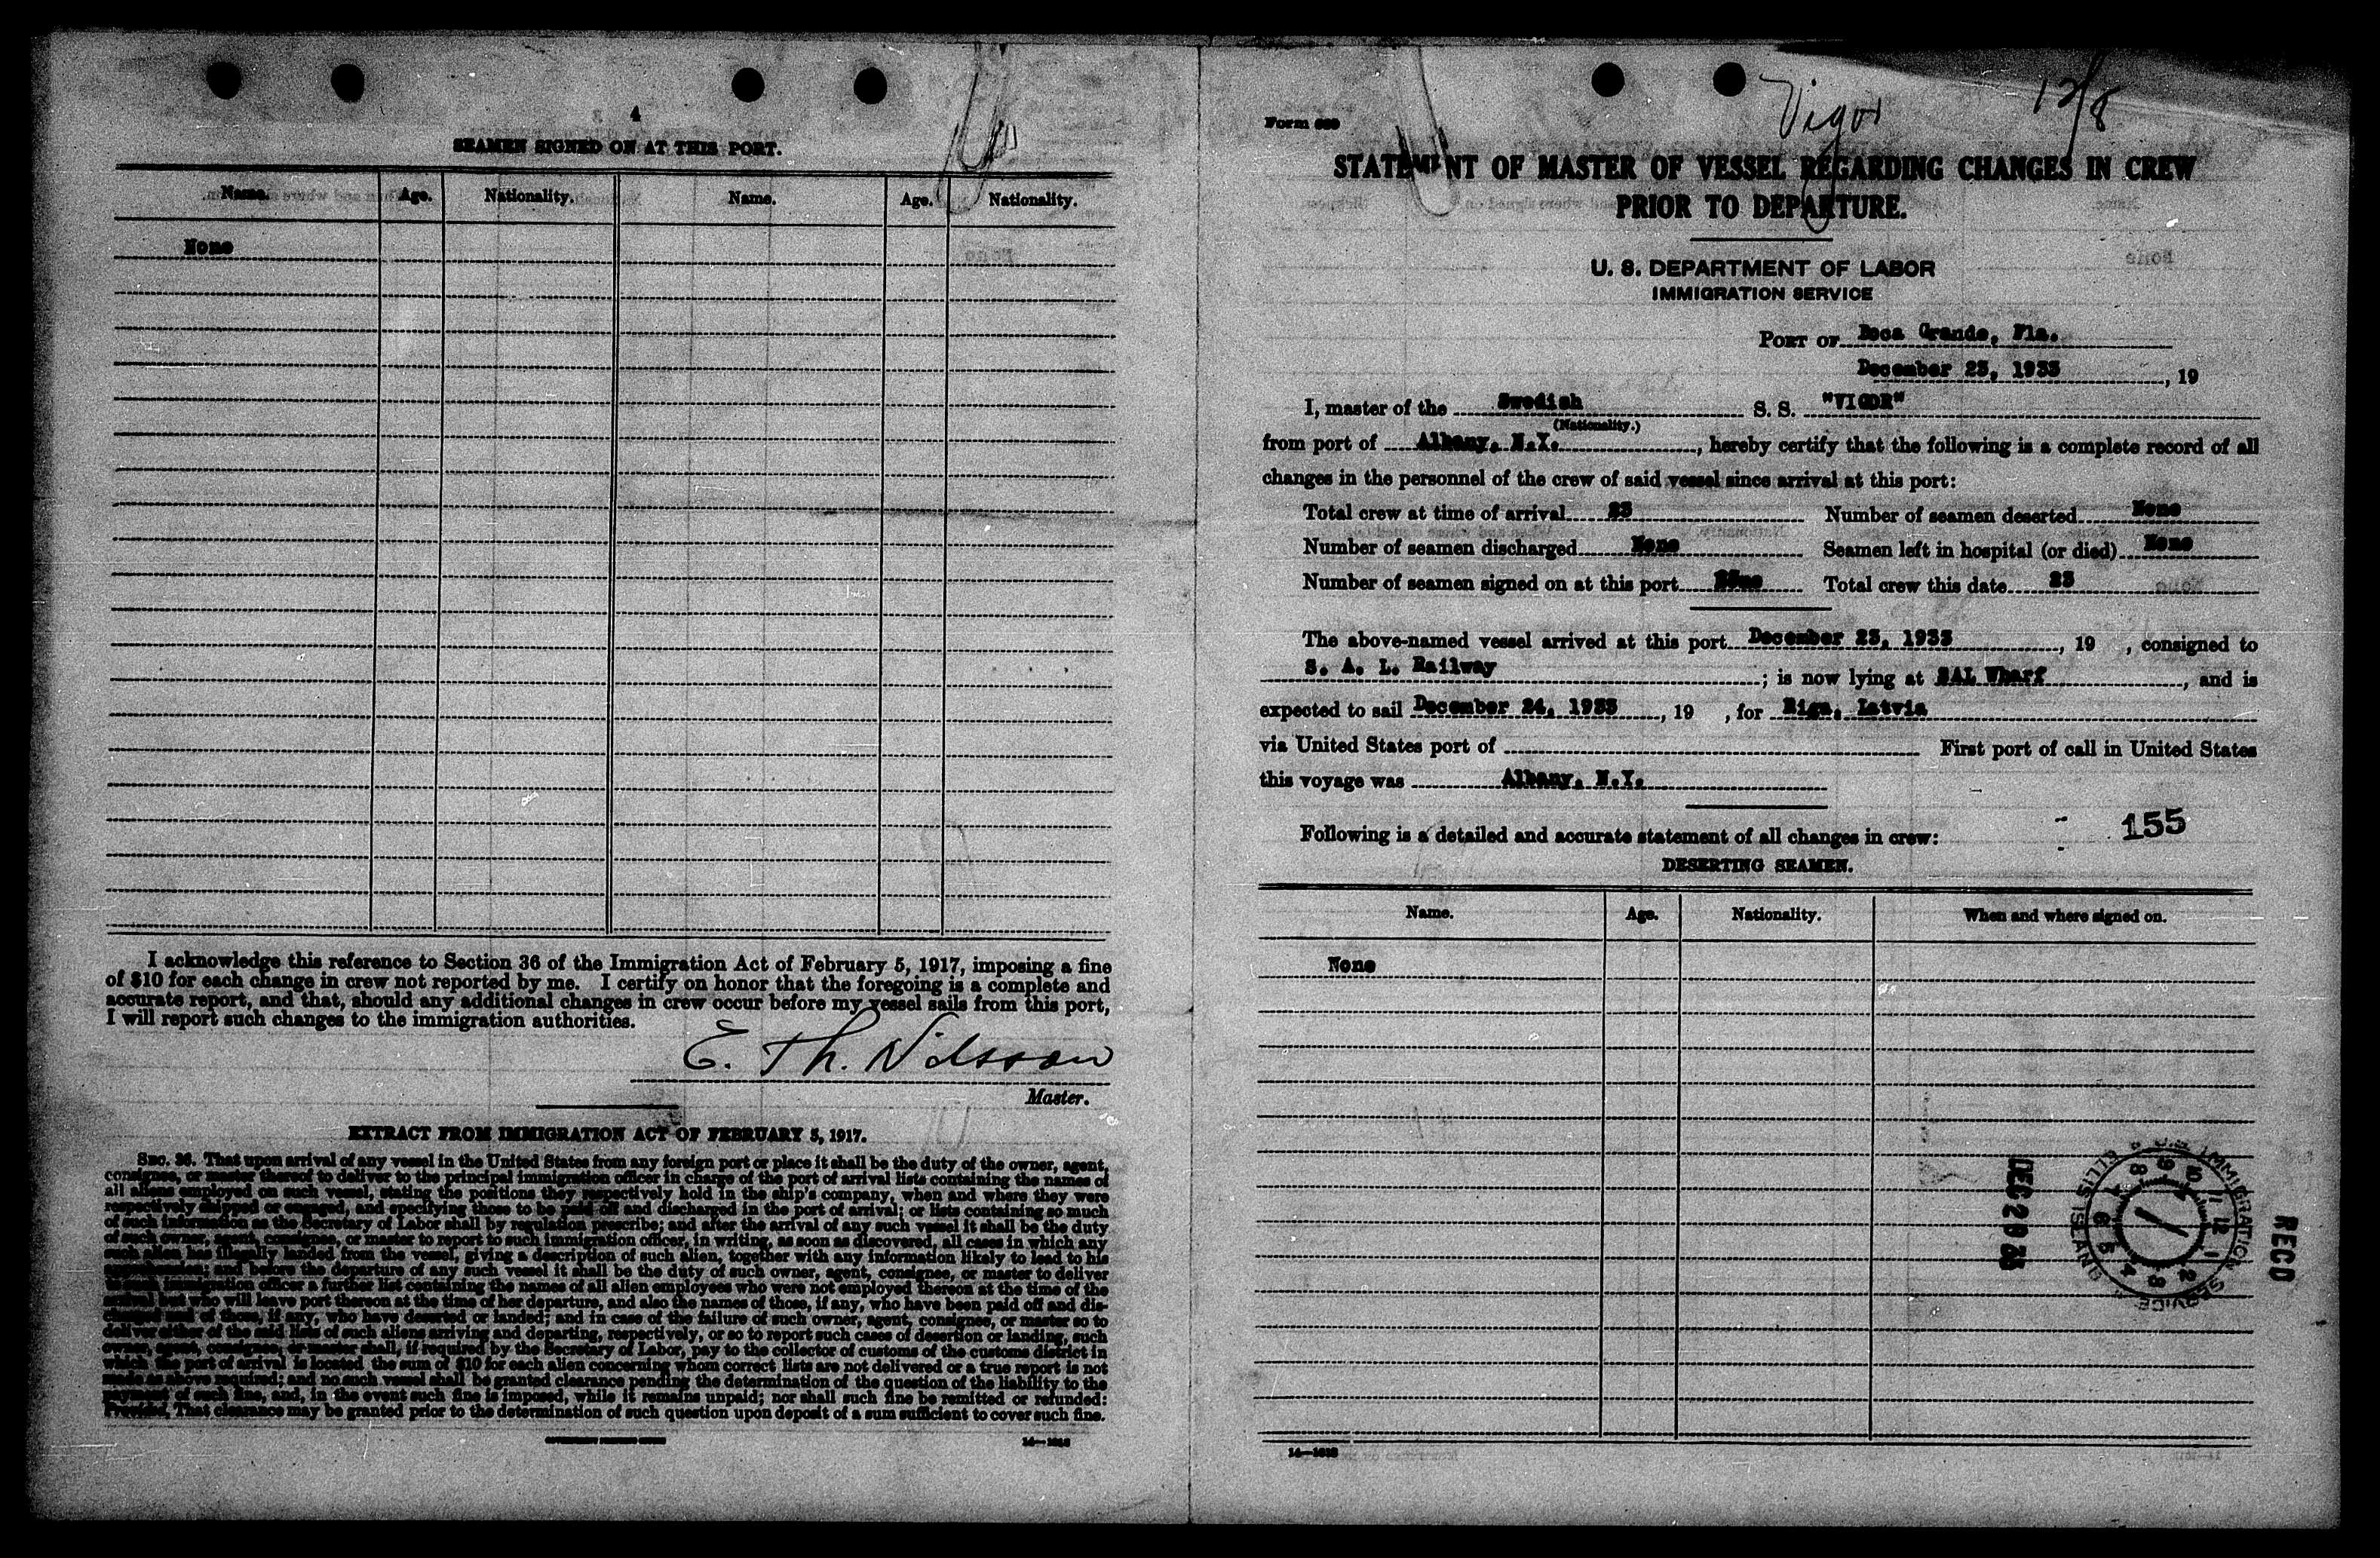 4
SEAMEN SIGNED ON AT THIS PORT.
Name. Age. Nationality. Name. Age. Nationality.
None
I acknowledge this reference to Section 36 of the Immigration Act of February 5, 1917, imposing a fine
of $10 for each change in crew not reported by me. I certify on honor that the foregoing is a complete and
accurate report, and that, should any additional changes in crew occur before my vessel sails from this port,
I will report such changes to the immigration authorities.
E. Th. Nilsson
Master.
EXTRACT FROM IMMIGRATION ACT OF FEBRUARY 5, 1917.
SEC. 36. That upon arrival of any vessel in the United States from any foreign port or place it shall be the duty of the owner, agent,
consignee, or master thereof to deliver to the principal immigration officer in charge of the port of arrival lists containing the names of
all aliens employed on such vessel, stating the positions they respectively hold in the ship's company, when and where they were
respectively shipped or engaged, and specifying those to be paid off and discharged in the port of arrival; or lists containing so much
of such information as the Secretary of Labor shall by regulation prescribe; and after the arrival of any such vessel it shall be the duty
of such owner, agent, consignee, or master to report to such immigration officer, in writing, as soon as discovered, all cases in which any
such alien has illegally landed from the vessel, giving a description of such alien, together with any information likely to lead to his
apprehension; and before the departure of any such vessel it shall be the duty of such owner, agent, consignee, or master to deliver
to such immigration officer a further list containing the names of all alien employees who were not employed thereon at the time of the
arrival but who will leave port thereon at the time of her departure, and also the names of those, if any, who have been paid off and dis-
charged and of those, if any, who have deserted or landed; and in case of the failure of such owner, agent, consignee, or master so to
deliver either of the said lists of such aliens arriving and departing, respectively, or so to report such cases of desertion or landing, such
owner, agent, consignee, or master shall, if required by the Secretary of Labor, pay to the collector of customs of the customs district in
which the port of arrival is located the sum of $10 for each alien concerning whom correct lists are not delivered or a true report is not
made as above required; and no such vessel shall be granted clearance pending the determination of the question of the liability to the
payment of such fine, and, in the event such fine is imposed, while it remains unpaid; nor shall such fine be remitted or refunded:
Provided, That clearance may be granted prior to the determination of such question upon deposit of a sum sufficient to cover such fine.
Vigor 12/8
Form
STATEMENT OF MASTER OF VESSEL REGARDING CHANGES IN CREW
PRIOR TO DEPARTURE.
U. S. DEPARTMENT OF LABOR
IMMIGRATION SERVICE
PORT OF Boca Grande, Fla.
December 23, 1933, 19
I, master of the Swedish S. S. "VIGOR"
(Nationality.)
from port of Albany, N.Y., hereby certify that the following is a complete record of all
changes in the personnel of the crew of said vessel since arrival at this port:
Total crew at time of arrival 23 Number of seamen deserted None
Number of seamen discharged None Seamen left in hospital (or died) None
Number of seamen signed on at this port Total crew this date 23
The above-named vessel arrived at this port December 23, 1933, 19 , consigned to
S. A. L. Railway ; is now lying at SAL Wharf, and is
expected to sail December 24, 1933, 19 , for Riga, Latvia
via United States port of First port of call in United States
this voyage was Albany, N.Y.
155
Following is a detailed and accurate statement of all changes in crew:
DESERTING SEAMEN.
Name. Age. Nationality. When and where signed on.
None
U.S. IMMIGRATION SERVICE ELLIS ISLAND
RECD